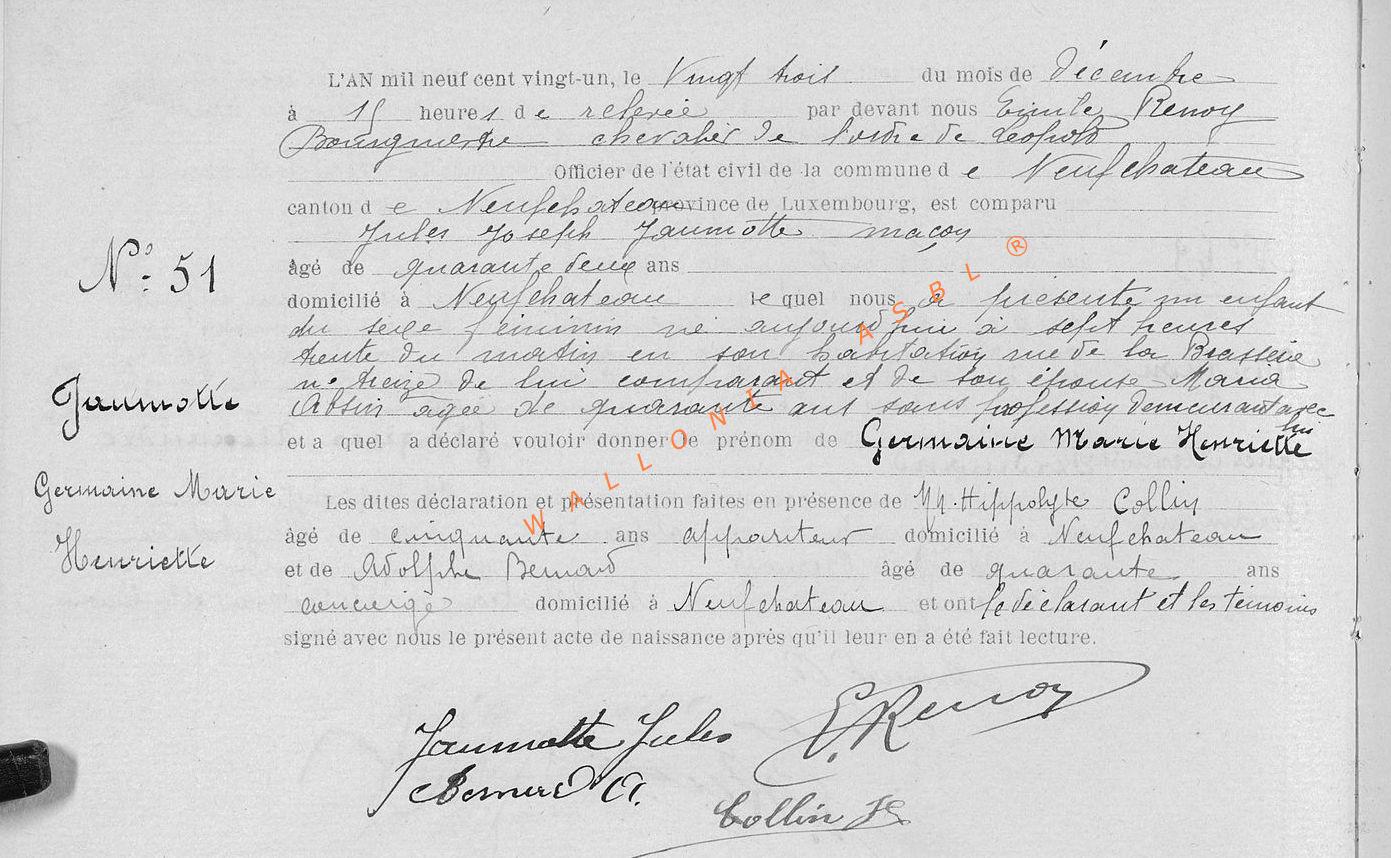 L'AN mil neuf cent vingt-un, le Vingt trois du mois de décembre
à 15 heures de relevée par devant nous Emile Renoy
Bourgmestre chevalier de l'ordre de Leopold
Officier de l'état civil de la commune de Neufchateau
canton de Neufchateau province de Luxembourg, est comparu
Jules Joseph Jaumotte maçon
N° 51
âgé de quarante deux ans
domicilié à Neufchateau lequel nous a présenté un enfant
du sexe féminin né aujourd'hui à sept heures
trente du matin en son habitation rue de la Brasserie
n° treize de lui comparant et de son épouse Maria
agée de quarante ans sans profession demeurant avec lui
Jaumotte
et a quel a déclaré vouloir donner le prénom de Germaine Marie Henriette
Germaine Marie
Henriette
Les dites déclaration et présentation faites en présence de MM. Hippolyte Collin
âgé de cinquante ans appariteur domicilié à Neufchateau
et de Adolphe Bernard âgé de quarante ans
concierge domicilié à Neufchateau et ont le déclarant et les témoins
signé avec nous le présent acte de naissance après qu'il leur en a été fait lecture.
Jaumotte Jules E. Renoy
Bernard A.
Collin H
WALLONIA ASBL ®